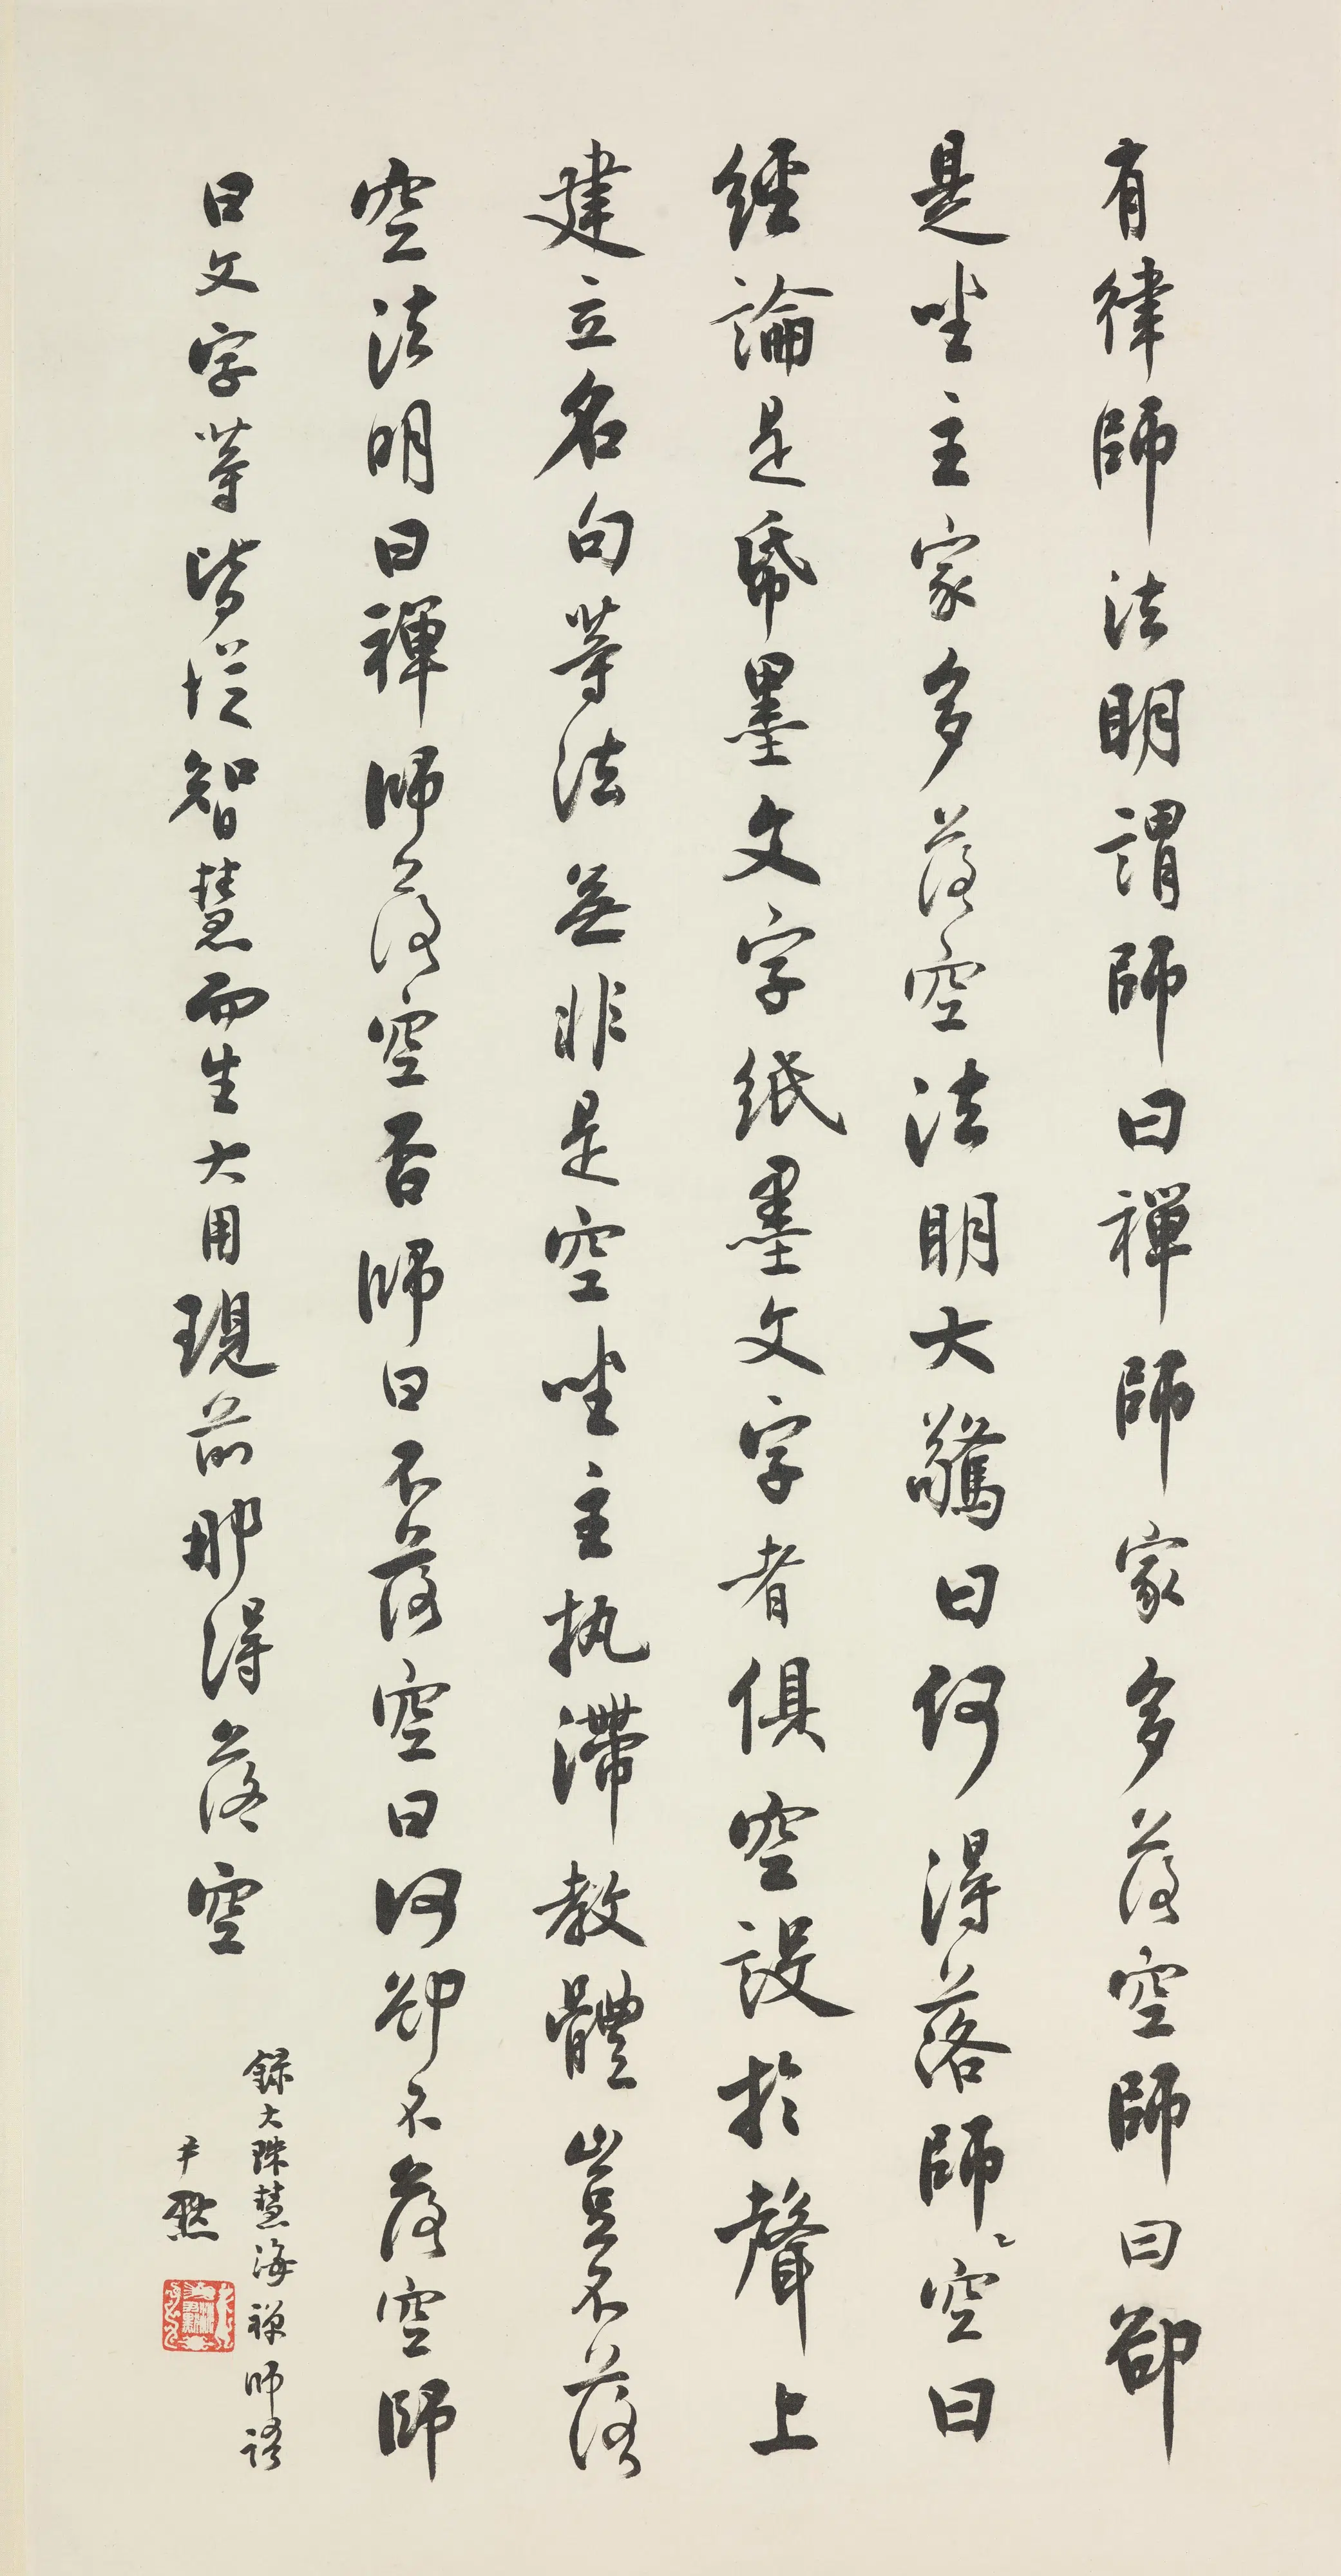 有律師法明謂師曰禪師家多落空師曰却
是坐主家多落空法明大驚曰何得落師〻空曰
經論是帋墨文字紙墨文字者俱空設於聲上
建立名句等法無非是空坐主執滯教體豈不落
空法明曰禪師落空否師曰不落空曰何卻不落空師
曰文字等皆從智慧而生大用現前那得落空
録大珠慧海禅师語
尹默